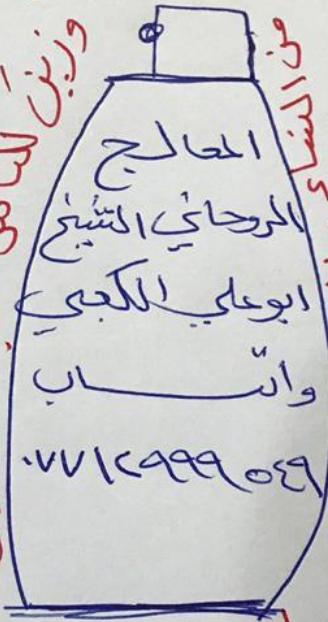 المعالج
الروحاني الشيخ
ابو علي الكعبي
واتساب
٠٧٧١٢٩٩٩٥٤٩
وزين للناس
من النساء